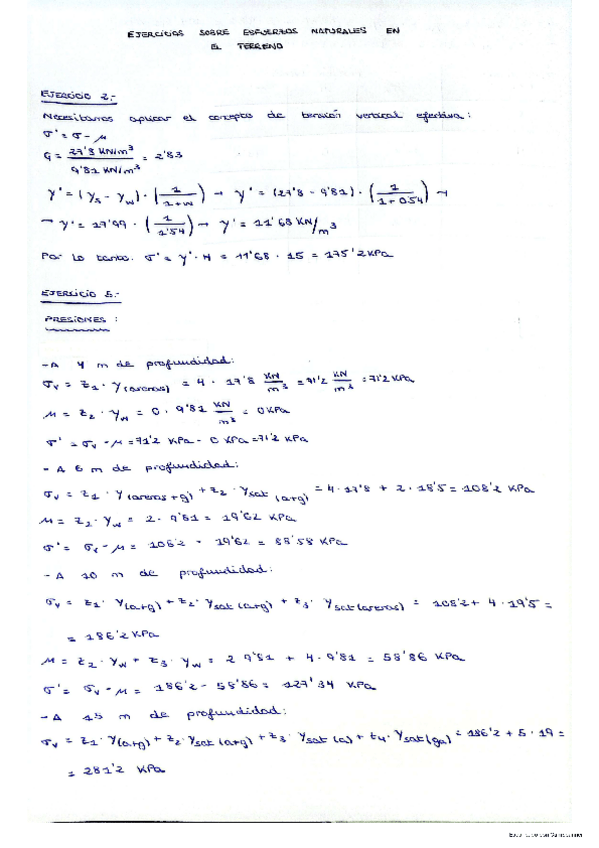 EJERCICIOS SOBRE ESFUERZOS NATURALES EN
EL TERRENO
EJERCICIO 2.-
Necesitamos aplicar el concepto de tensión vertical efectiva:
σ' = σ - μ
G = 27'8 KN/m³ / 9'81 KN/m³ = 2'83
γ' = (γs - γw) · (1/1+w) → γ' = (27'8 - 9'81) · (1/1+0'54) →
→ γ' = 17'99 · (1/1'54) → γ' = 11'68 KN/m³
Por lo tanto: σ' = γ' · H = 11'68 · 15 = 175'2 KPa
EJERCICIO 5.-
PRESIONES:
- A 4 m de profundidad:
σv = z1 · γ(arenas) = 4 · 17'8 KN/m³ = 71'2 KN/m² = 71'2 KPa
μ = z2 · γw = 0 · 9'81 KN/m³ = 0 KPa
σ' = σv - μ = 71'2 KPa - 0 KPa = 71'2 KPa
- A 6 m de profundidad:
σv = z1 · γ(arenas+g) + z2 · γsat(arg) = 4 · 17'8 + 2 · 18'5 = 108'2 KPa
μ = z2 · γw = 2 · 9'81 = 19'62 KPa
σ' = σv - μ = 108'2 - 19'62 = 88'58 KPa
- A 10 m de profundidad:
σv = z1 · γ(arg) + z2 · γsat(arg) + z3 · γsat(arenas) = 108'2 + 4 · 19'5 =
= 186'2 KPa
μ = z2 · γw + z3 · γw = 2 9'81 + 4 · 9'81 = 58'86 KPa
σ' = σv - μ = 186'2 - 58'86 = 127'34 KPa
- A 15 m de profundidad:
σv = z1 · γ(arg) + z2 · γsat(arg) + z3 · γsat(a) + z4 · γsat(ga) = 186'2 + 5 · 19 =
= 281'2 KPa